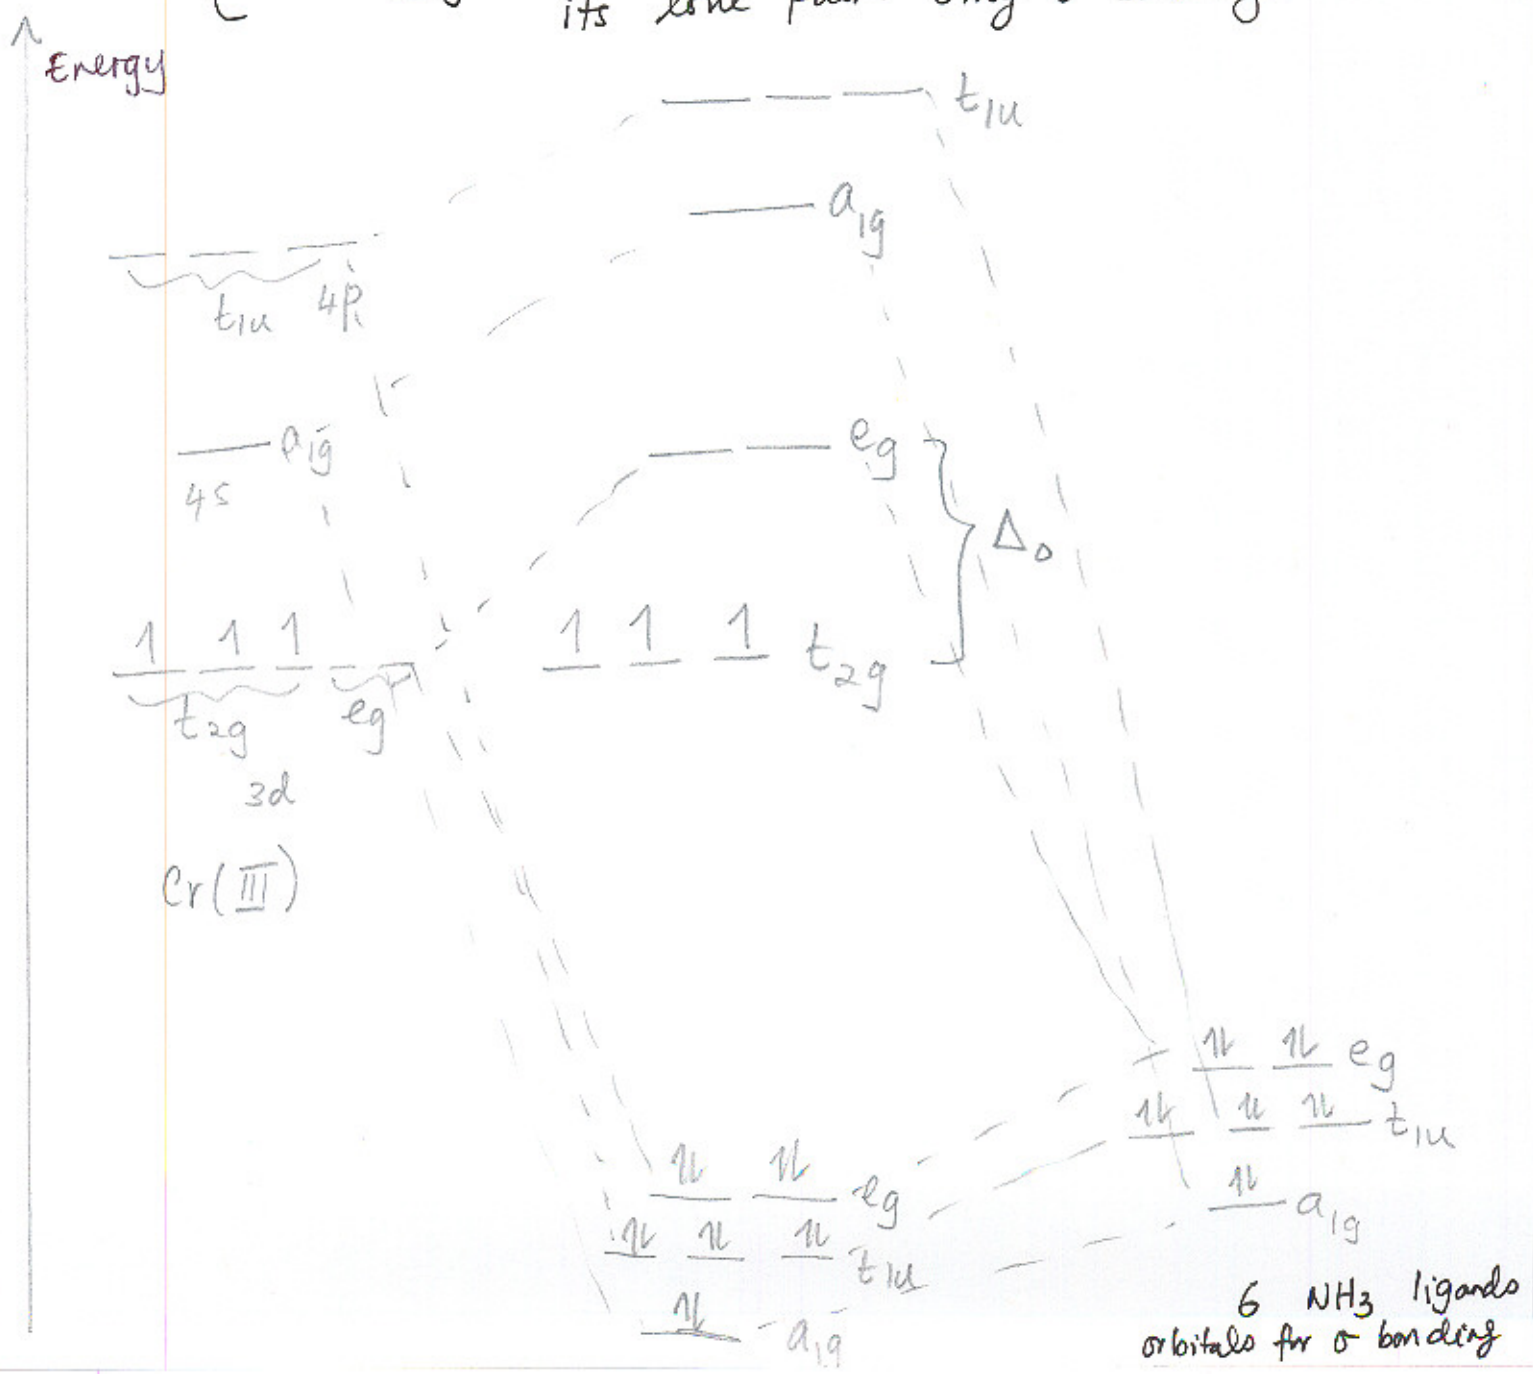 its lone pair only
Energy
t1u
a1g
t1u 4p
a1g
4s
eg
Δo
1 1 1
1 1 1 t2g
t2g eg
3d
Cr(III)
1L 1L eg
1L 1L 1L t1u
1L a1g
1L 1L eg
1L 1L 1L t1u
1L a1g
6 NH3 ligands
orbitals for σ bonding